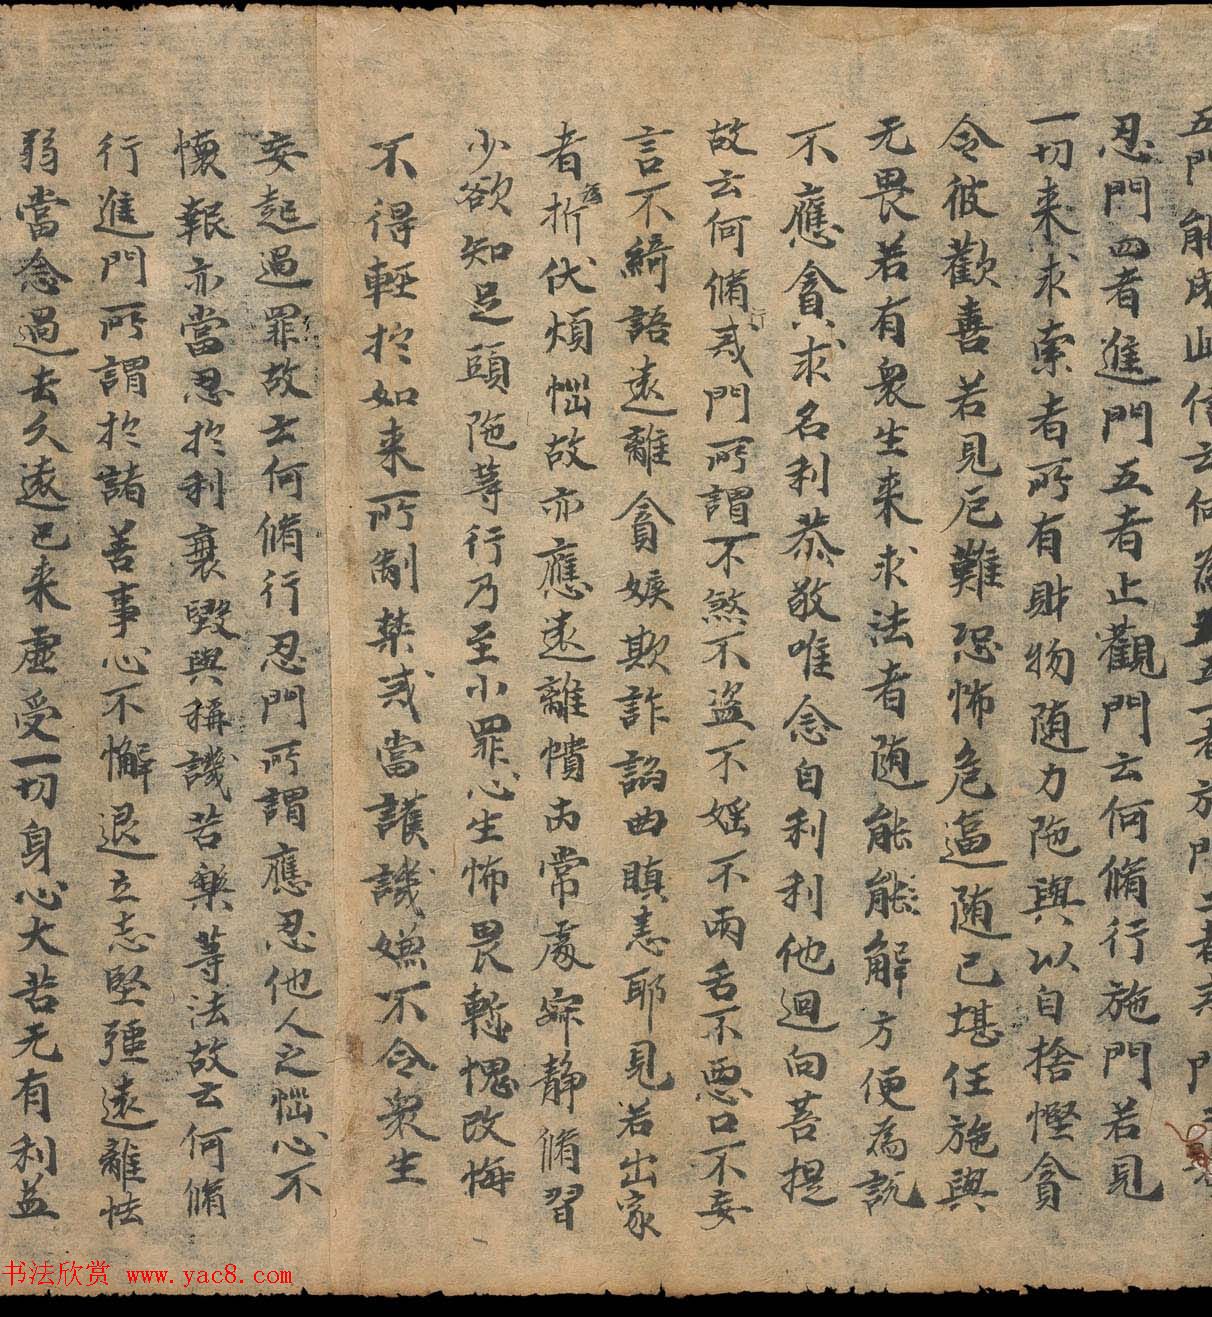 五門能成此信云何為五一者施門二者戒門三者
忍門四者進門五者止觀門云何脩行施門若見
一切来求索者所有財物随力施與以自捨慳貪
令彼歡善若見厄難恐怖危逼随已堪任施與
无畏若有衆生来求法者随能能解方便為說
不應貪求名利恭敬唯念自利利他迴向菩提
故云何脩行戒門所謂不煞不盗不婬不兩舌不惡口不妄
言不綺語遠離貪嫉欺詐諂曲瞋恚耶見若出家
者為折伏煩惱故亦應遠離憒丙常處寂静脩習
少欲知足頭陁等行乃至小罪心生怖畏慙愧改悔
不得輕扵如来所制禁戒當護譏嫌不令衆生
妄起過罪故云何脩行忍門所謂應忍他人之惱心不
懷報亦當忍扵利衰毀與稱譏苦樂等法故云何脩
行進門所謂扵諸善事心不懈退立志堅強遠離怯
弱當念過去久遠已来虛受一切身心大苦无有利益
书法欣赏 www.yac8.com